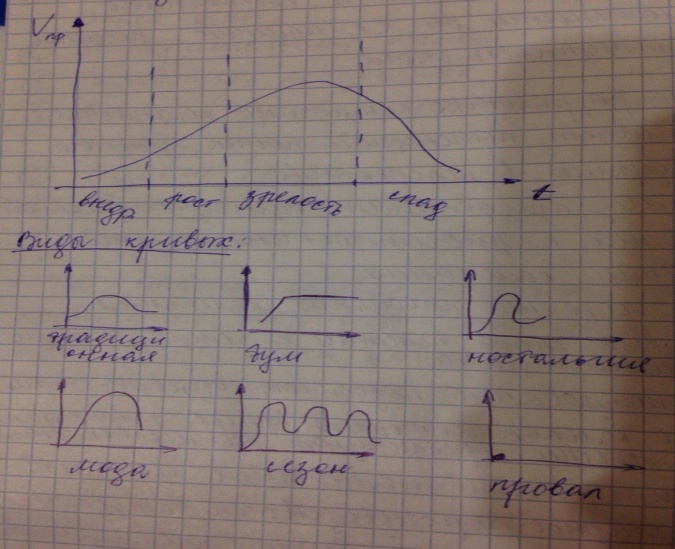 Vпр
внедр. рост зрелость спад t
Виды кривых:
традици
онная
бум ностальгия
мода сезон провал